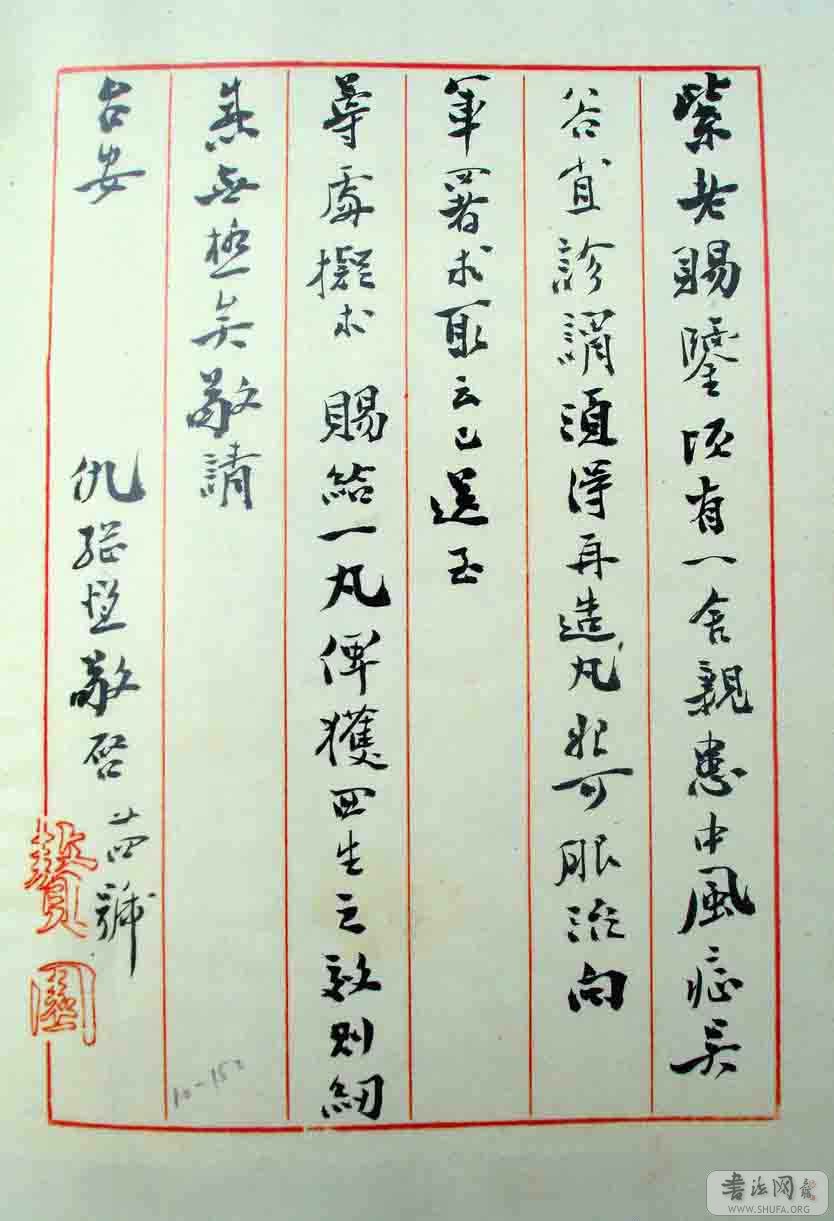 紫老賜鑒頃有一舍親患中風症吳
谷宜診謂須得再造丸可服治向
軍署求取云已送至
尊處擬求 賜給一丸俾獲回生之效則紉
感無極矣敬請
台安
仇繼恆敬啓 廿四號
10-152
书法网
WWW.SHUFA.ORG